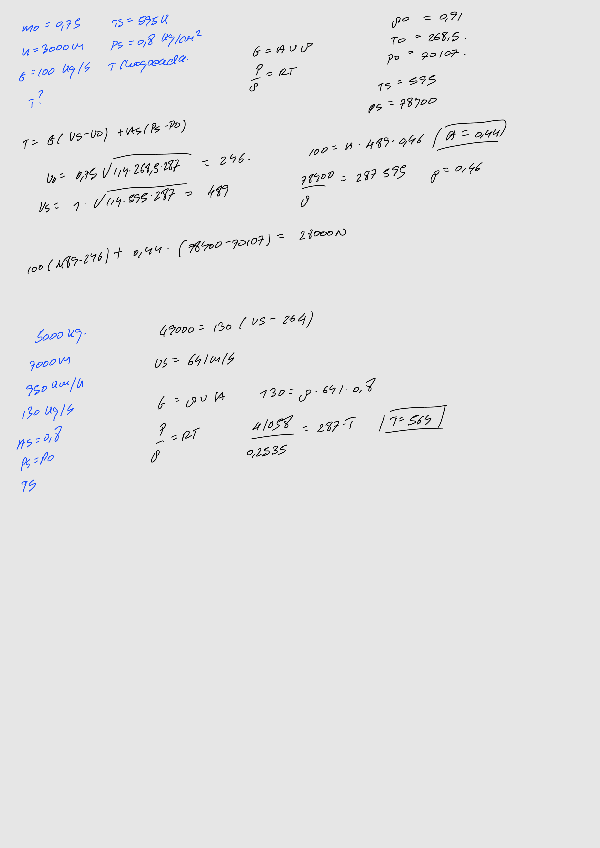 M0 = 0,75 TS = 595K
h = 3000m PS = 0,8 kg/cm²
G = 100 kg/s T (bloqueada.
T?
G = A v ρ
P/ρ = RT
ρ0 = 0,91
T0 = 268,5.
P0 = 70107.
TS = 595
PS = 78400
T = G(VS-V0) + AS(PS-P0)
V0 = 0,75 √1,4·268,5·287 = 246.
VS = 1·√1,4·595·287 = 489
100 = A·489·0,46 (A = 0,44)
78400/ρ = 287·595 ρ = 0,46
100(489-246) + 0,44·(78400-70107) = 28000N
5000kg.
7000m
950km/h
130 kg/s
AS = 0,8
PS = P0
TS
49000 = 130 (VS - 264)
VS = 641m/s
G = ρvA 130 = ρ·641·0,8
P/ρ = RT 41058/0,2535 = 287·T T = 565